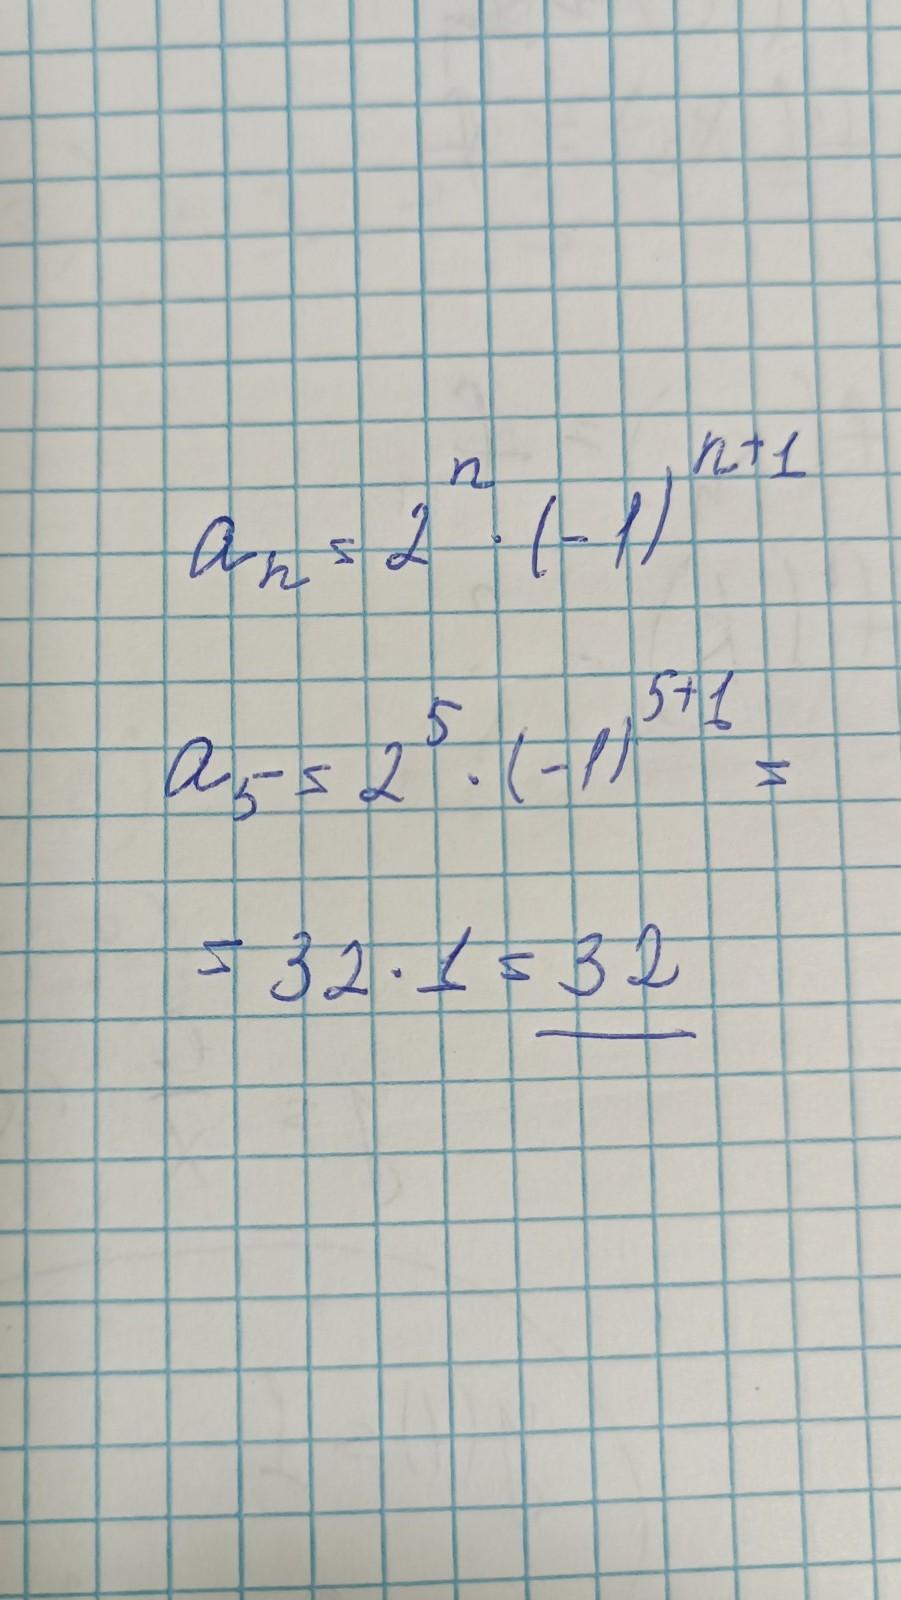 aₙ = 2ⁿ · (-1)ⁿ⁺¹
a₅ = 2⁵ · (-1)⁵⁺¹ =
= 32 · 1 = 32